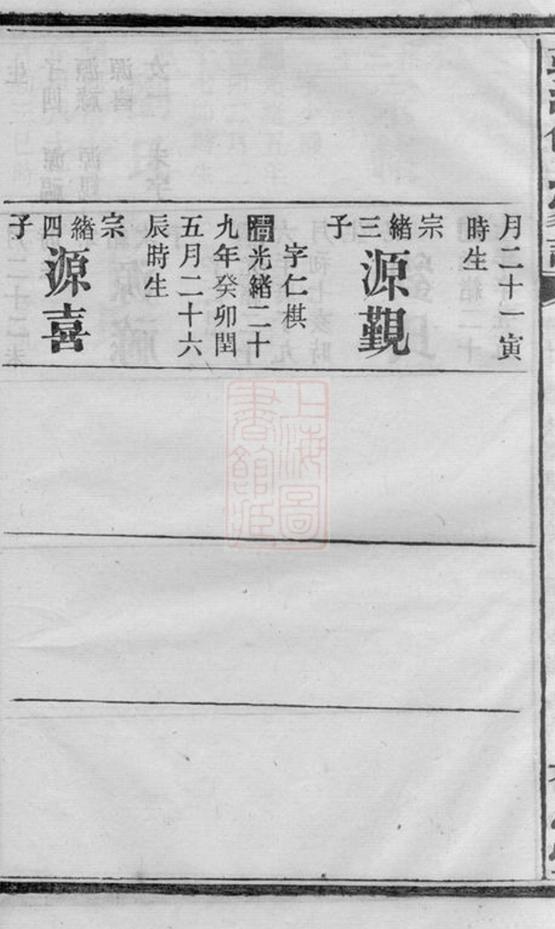 月二十一寅
時生
宗緒三子
源觀
字仁棋
清光緒二十
九年癸卯閏
五月二十六
辰時生
宗緒四子
源喜
上海圖書館